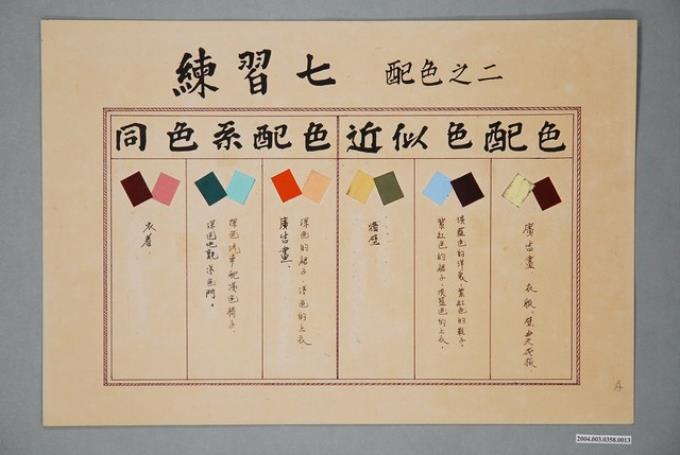 練習七 配色之二
同色系配色
近似色配色
衣着
深色汽車配淺色椅子.
深色地氈 淺色門.
深色的裙子.淺色的上衣.
廣告畫.
牆壁
淡藍色的洋裝.紫紅色的鞋子.
紫紅色的裙子.淡藍色的上衣.
廣告畫 衣服.壁
A
2004.003.0358.0013